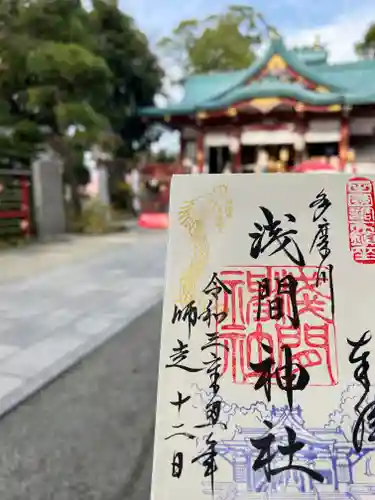 奉拝
多摩川
浅間神社
浅間神社
令和三辛丑年
師走十二日